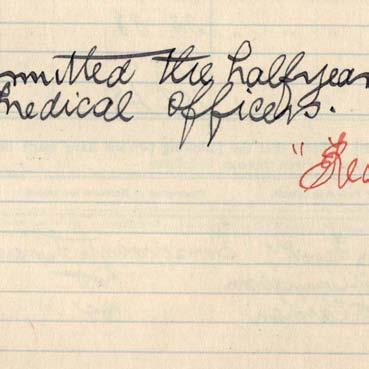 mitted the halfyear
medical officers.